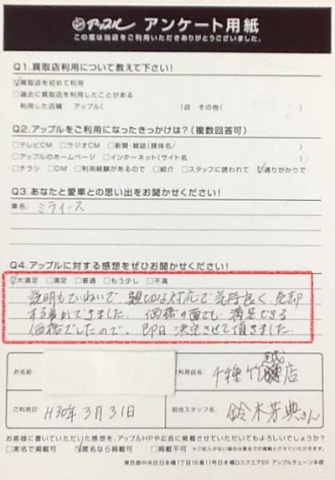 アップル アンケート用紙
この度は当店をご利用いただきありがとうございました。
Q1.買取店利用について教えて下さい!
☑買取店を初めて利用
□過去に買取店を利用したことがある
利用した店舗 アップル( )店 その他( )
Q2.アップルをご利用になったきっかけは?(複数回答可)
□テレビCM □ラジオCM □新聞・雑誌(媒体名 )
□アップルのホームページ □インターネット(サイト名 )
□チラシ □DM □利用経験があるので □紹介 □スタッフに誘われて ☑通りがかりで
Q3.あなたと愛車との思い出をお聞かせください!
車名: ミライース
Q4.アップルに対する感想をぜひお聞かせください!
☑大満足 □満足 □普通 □もう少し □不満
説明もていねいで、親切な対応で気持良く、売却
する事ができました。価格の面でも満足できる
価格でしたので、即日決定させて頂きました。
お名前
ご利用店名 千種竹越店
ご利用日 H30年3月31日
担当スタッフ名 鈴木芳典さん
お客様に書いていただいた感想を、アップルHPや広告に掲載させていただいてもよろしいでしょうか?
□実名で掲載可 ☑匿名なら掲載可 □掲載不可
東京都中央区日本橋1丁目16番11号日本橋Dスクエア5F アップルチェーン本部